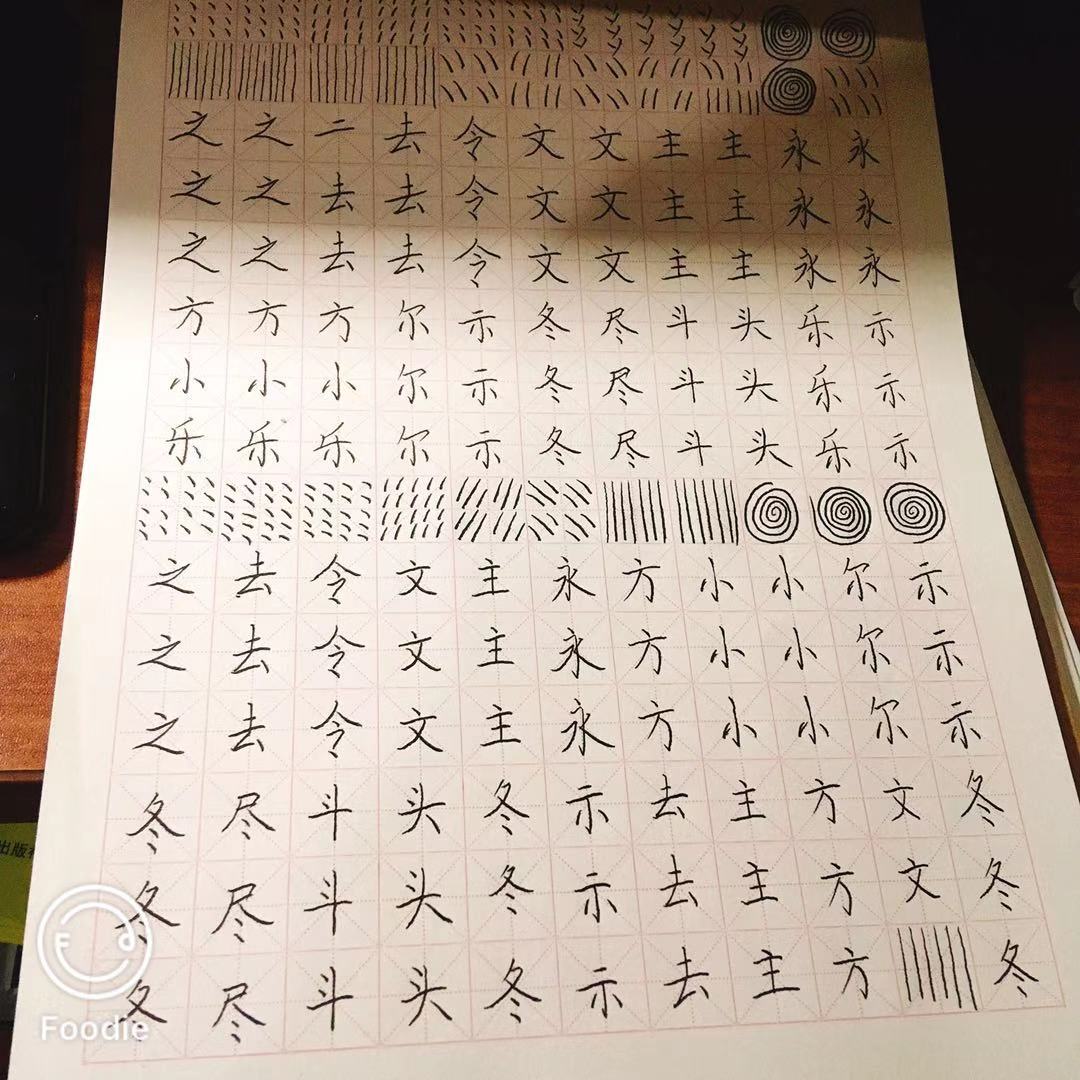 之 之 二 去 令 文 文 主 主 永 永
之 之 去 去 令 文 文 主 主 永 永
之 之 去 去 令 文 文 主 主 永 永
方 方 方 尔 示 冬 尽 斗 头 乐 示
小 小 小 尔 示 冬 尽 斗 头 乐 示
乐 乐 乐 尔 示 冬 尽 斗 头 乐 示
之 去 令 文 主 永 方 小 小 尔 示
之 去 令 文 主 永 方 小 小 尔 示
之 去 令 文 主 永 方 小 小 尔 示
冬 尽 斗 头 冬 示 去 主 方 文 冬
出版
冬 尽 斗 头 冬 示 去 主 方 文 冬
冬 尽 斗 头 冬 示 去 主 方 冬
Foodie